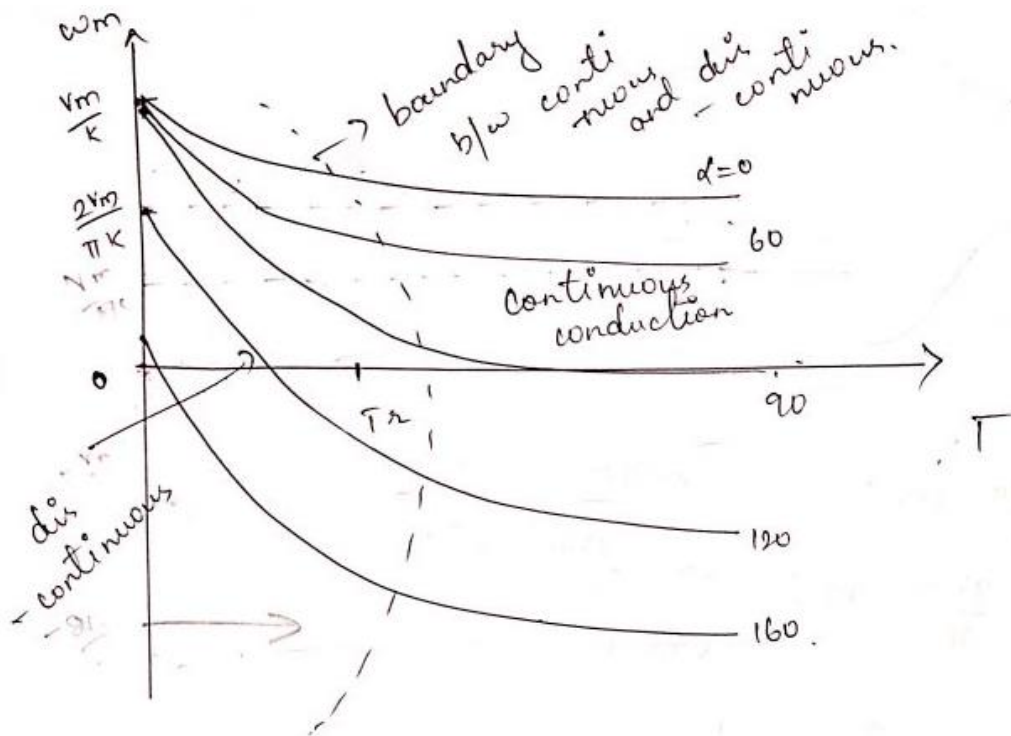 ωm
Vm
K
2Vm
πK
Vm
0
boundary
b/w conti
nuous
and dis
- conti
nuous.
α=0
60
continuous
conduction
90
Tr
T
dis
- continuous
120
160.